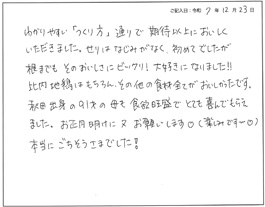 ご記入日:令和 7年 12月 23日
わかりやすい「つくり方」通りで 期待以上においしく
いただきました。せりはなじみがなく、初めてでしたが
根までも そのおいしさにビックリ! 大好きになりました!!
比内地鶏はもちろん、その他の食材全てがおいしかったです。
秋田出身の91才の母も 食欲旺盛で とても喜んでもらえ
ました。お正月明けに 又 お願いします○(楽しみです〜○)
本当に ごちそうさまでした!